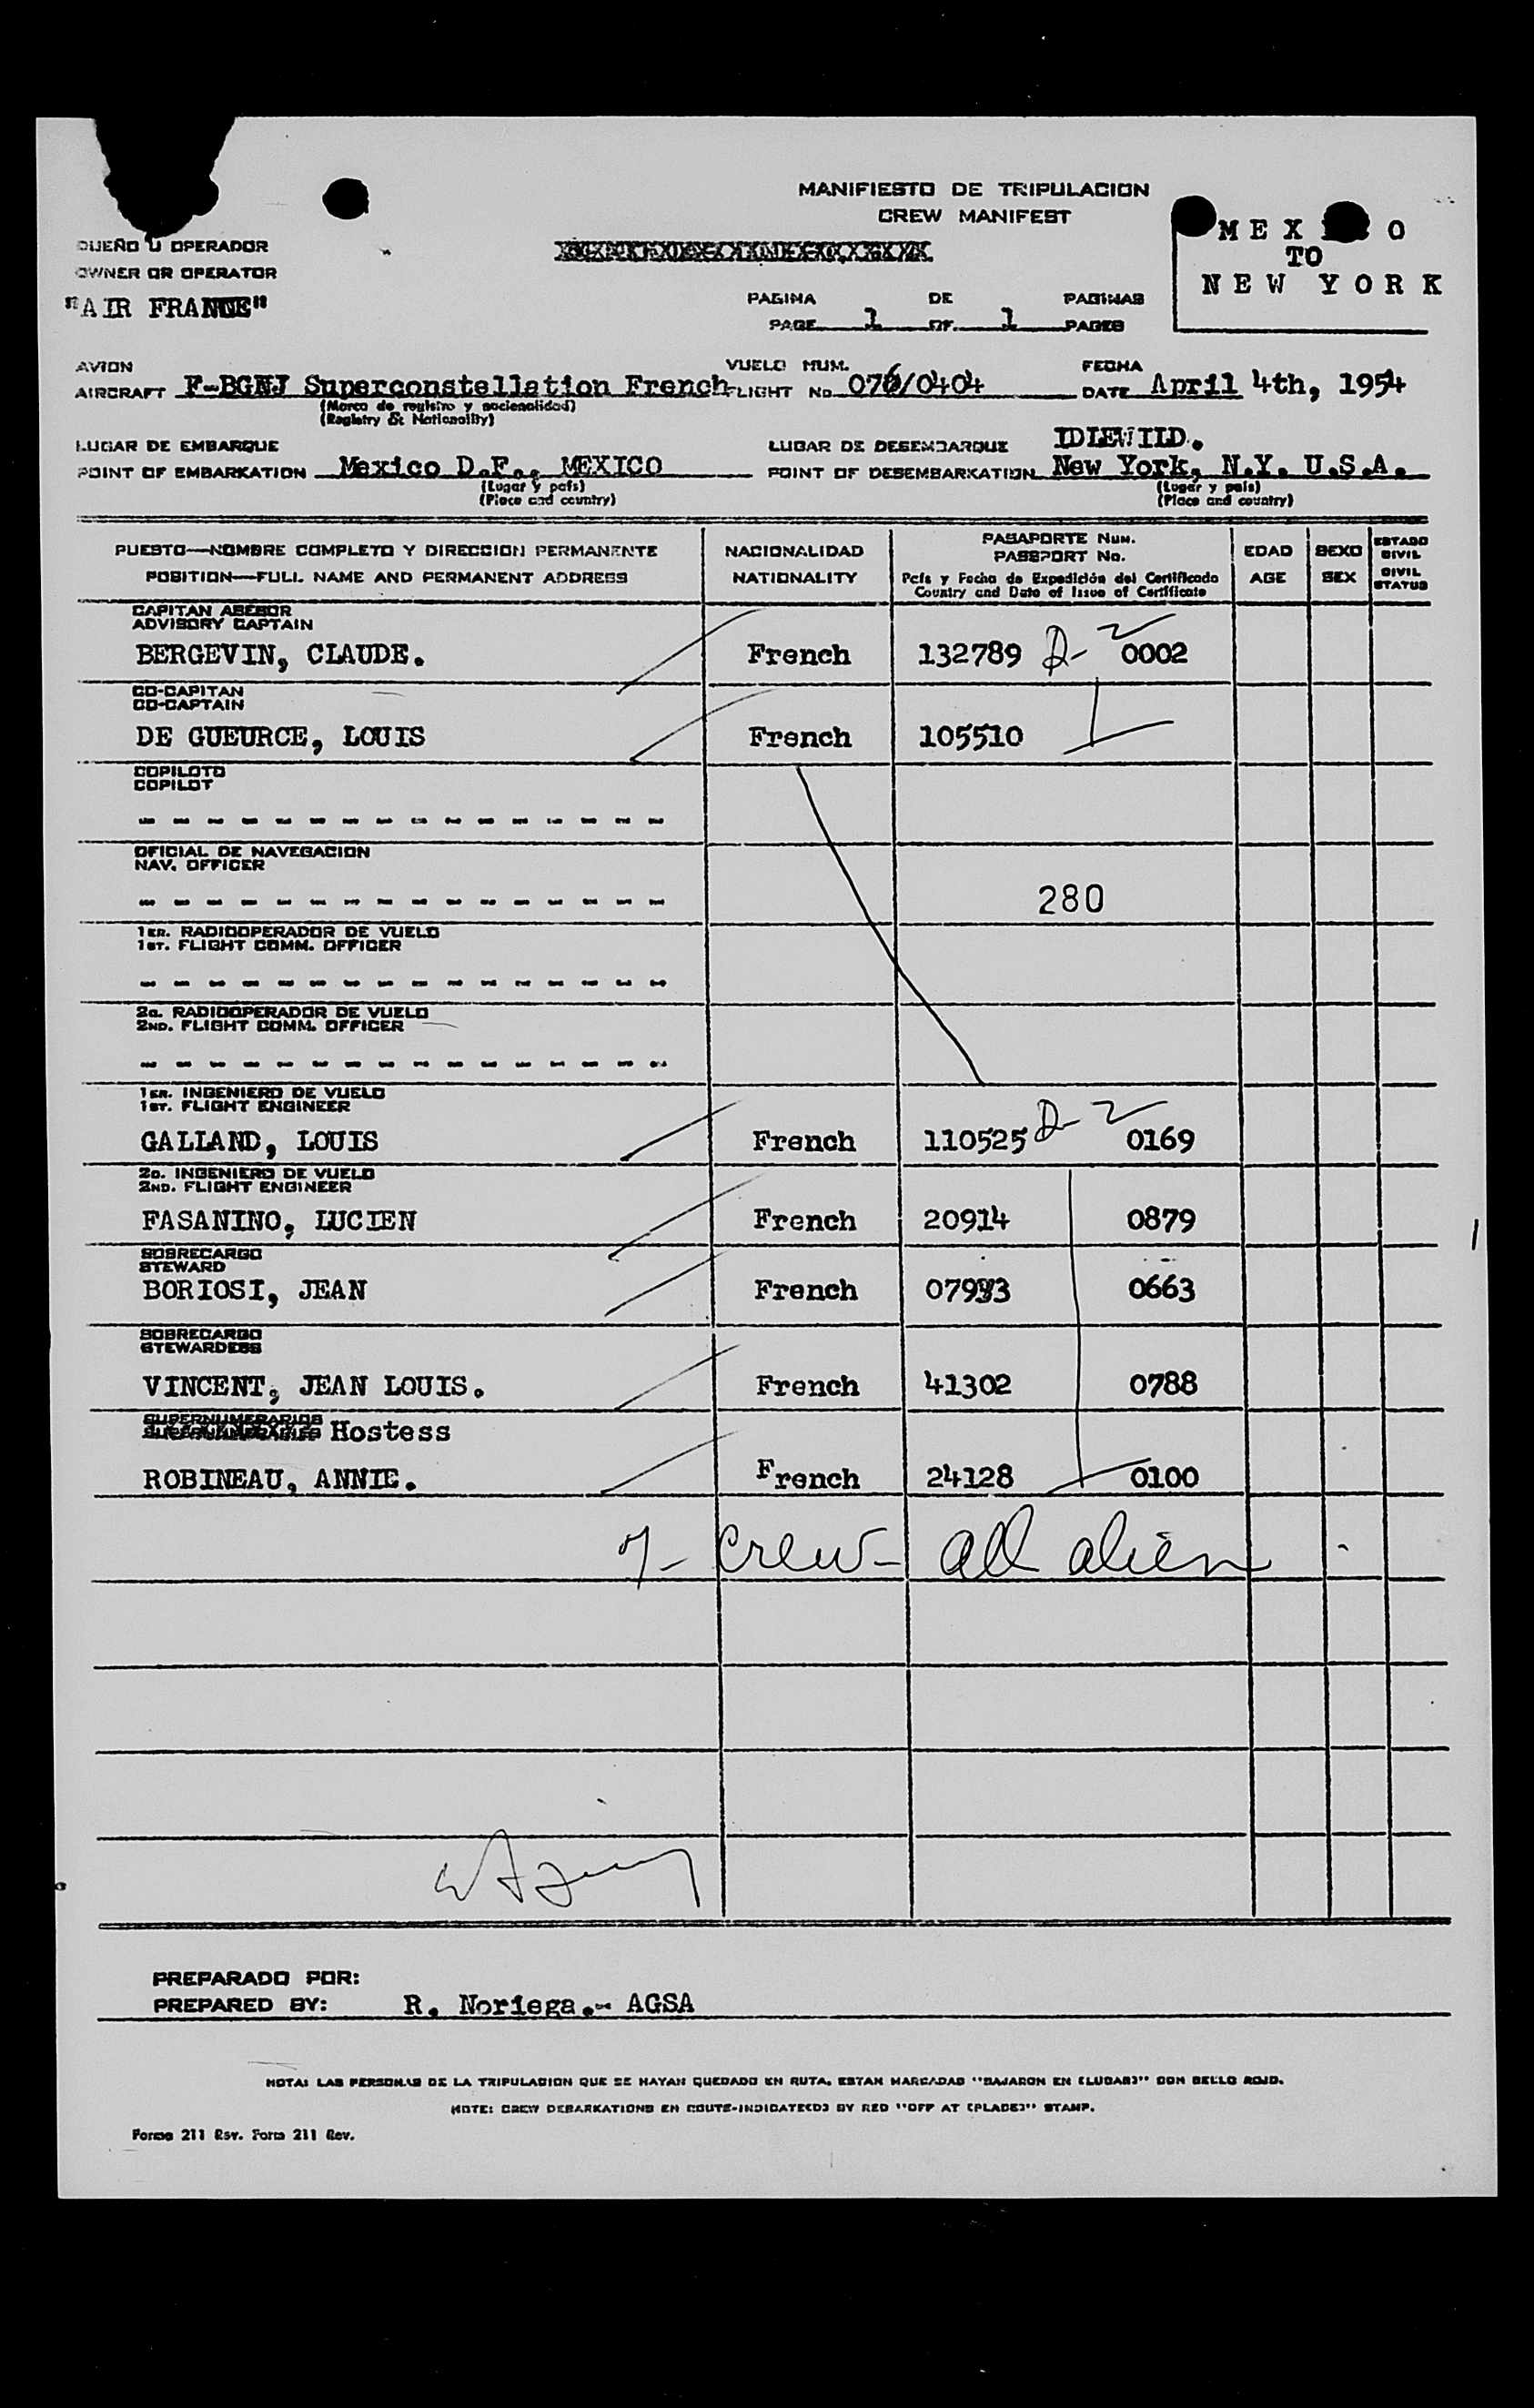 MANIFIESTO DE TRIPULACION
CREW MANIFEST
MEXICO
TO
NEW YORK
DUEÑO U OPERADOR
OWNER OR OPERATOR
"AIR FRANCE"
PAGINA 1 DE 1 PAGINAS
PAGE OF PAGES
AVION
AIRCRAFT F-BGNJ Superconstellation French
(Marca de registro y nacionalidad)
(Registry & Nationality)
VUELO NUM.
FLIGHT No. 076/0404
FECHA
DATE April 4th, 1954
LUGAR DE EMBARQUE
POINT OF EMBARKATION Mexico D.F., MEXICO
(Lugar y país)
(Place and country)
LUGAR DE DESEMBARQUE IDLEWILD.
POINT OF DESEMBARKATION New York, N.Y. U.S.A.
(Lugar y país)
(Place and country)
PUESTO—NOMBRE COMPLETO Y DIRECCION PERMANENTE
POSITION—FULL NAME AND PERMANENT ADDRESS
NACIONALIDAD
NATIONALITY
PASAPORTE Num.
PASSPORT No.
País y Fecha de Expedición del Certificado
Country and Date of Issue of Certificate
EDAD
AGE
SEXO
SEX
ESTADO CIVIL
CIVIL STATUS
CAPITAN ASESOR
ADVISORY CAPTAIN
BERGEVIN, CLAUDE. French 132789 D-2 0002
CO-CAPITAN
CO-CAPTAIN
DE GUEURCE, LOUIS French 105510
COPILOTO
COPILOT
- - - - - - - - - - - - - - - -
OFICIAL DE NAVEGACION
NAV. OFFICER
- - - - - - - - - - - - - - - -
280
1ER. RADIOOPERADOR DE VUELO
1ST. FLIGHT COMM. OFFICER
- - - - - - - - - - - - - - - -
2o. RADIOOPERADOR DE VUELO
2ND. FLIGHT COMM. OFFICER
- - - - - - - - - - - - - - - -
1ER. INGENIERO DE VUELO
1ST. FLIGHT ENGINEER
GALLAND, LOUIS French 110525 D-2 0169
2o. INGENIERO DE VUELO
2ND. FLIGHT ENGINEER
FASANINO, LUCIEN French 20914 0879
SOBRECARGO
STEWARD
BORIOSI, JEAN French 0663
SOBRECARGO
STEWARDESS
VINCENT, JEAN LOUIS. French 41302 0788
SUPERNUMERARIOS
SUPERNUMERARIES Hostess
ROBINEAU, ANNIE. French 24128 0100
7- crew- all alien
PREPARADO POR:
PREPARED BY: R. Noriega.- AGSA
NOTA: LAS PERSONAS DE LA TRIPULACION QUE SE HAYAN QUEDADO EN RUTA, ESTAN MARCADAS "BAJARON EN (LUGAR)" CON SELLO ROJO.
NOTE: CREW DEBARKATIONS EN ROUTE-INDICATE(D) BY RED "OFF AT (PLACE)" STAMP.
Forma 211 Rev. Form 211 Rev.